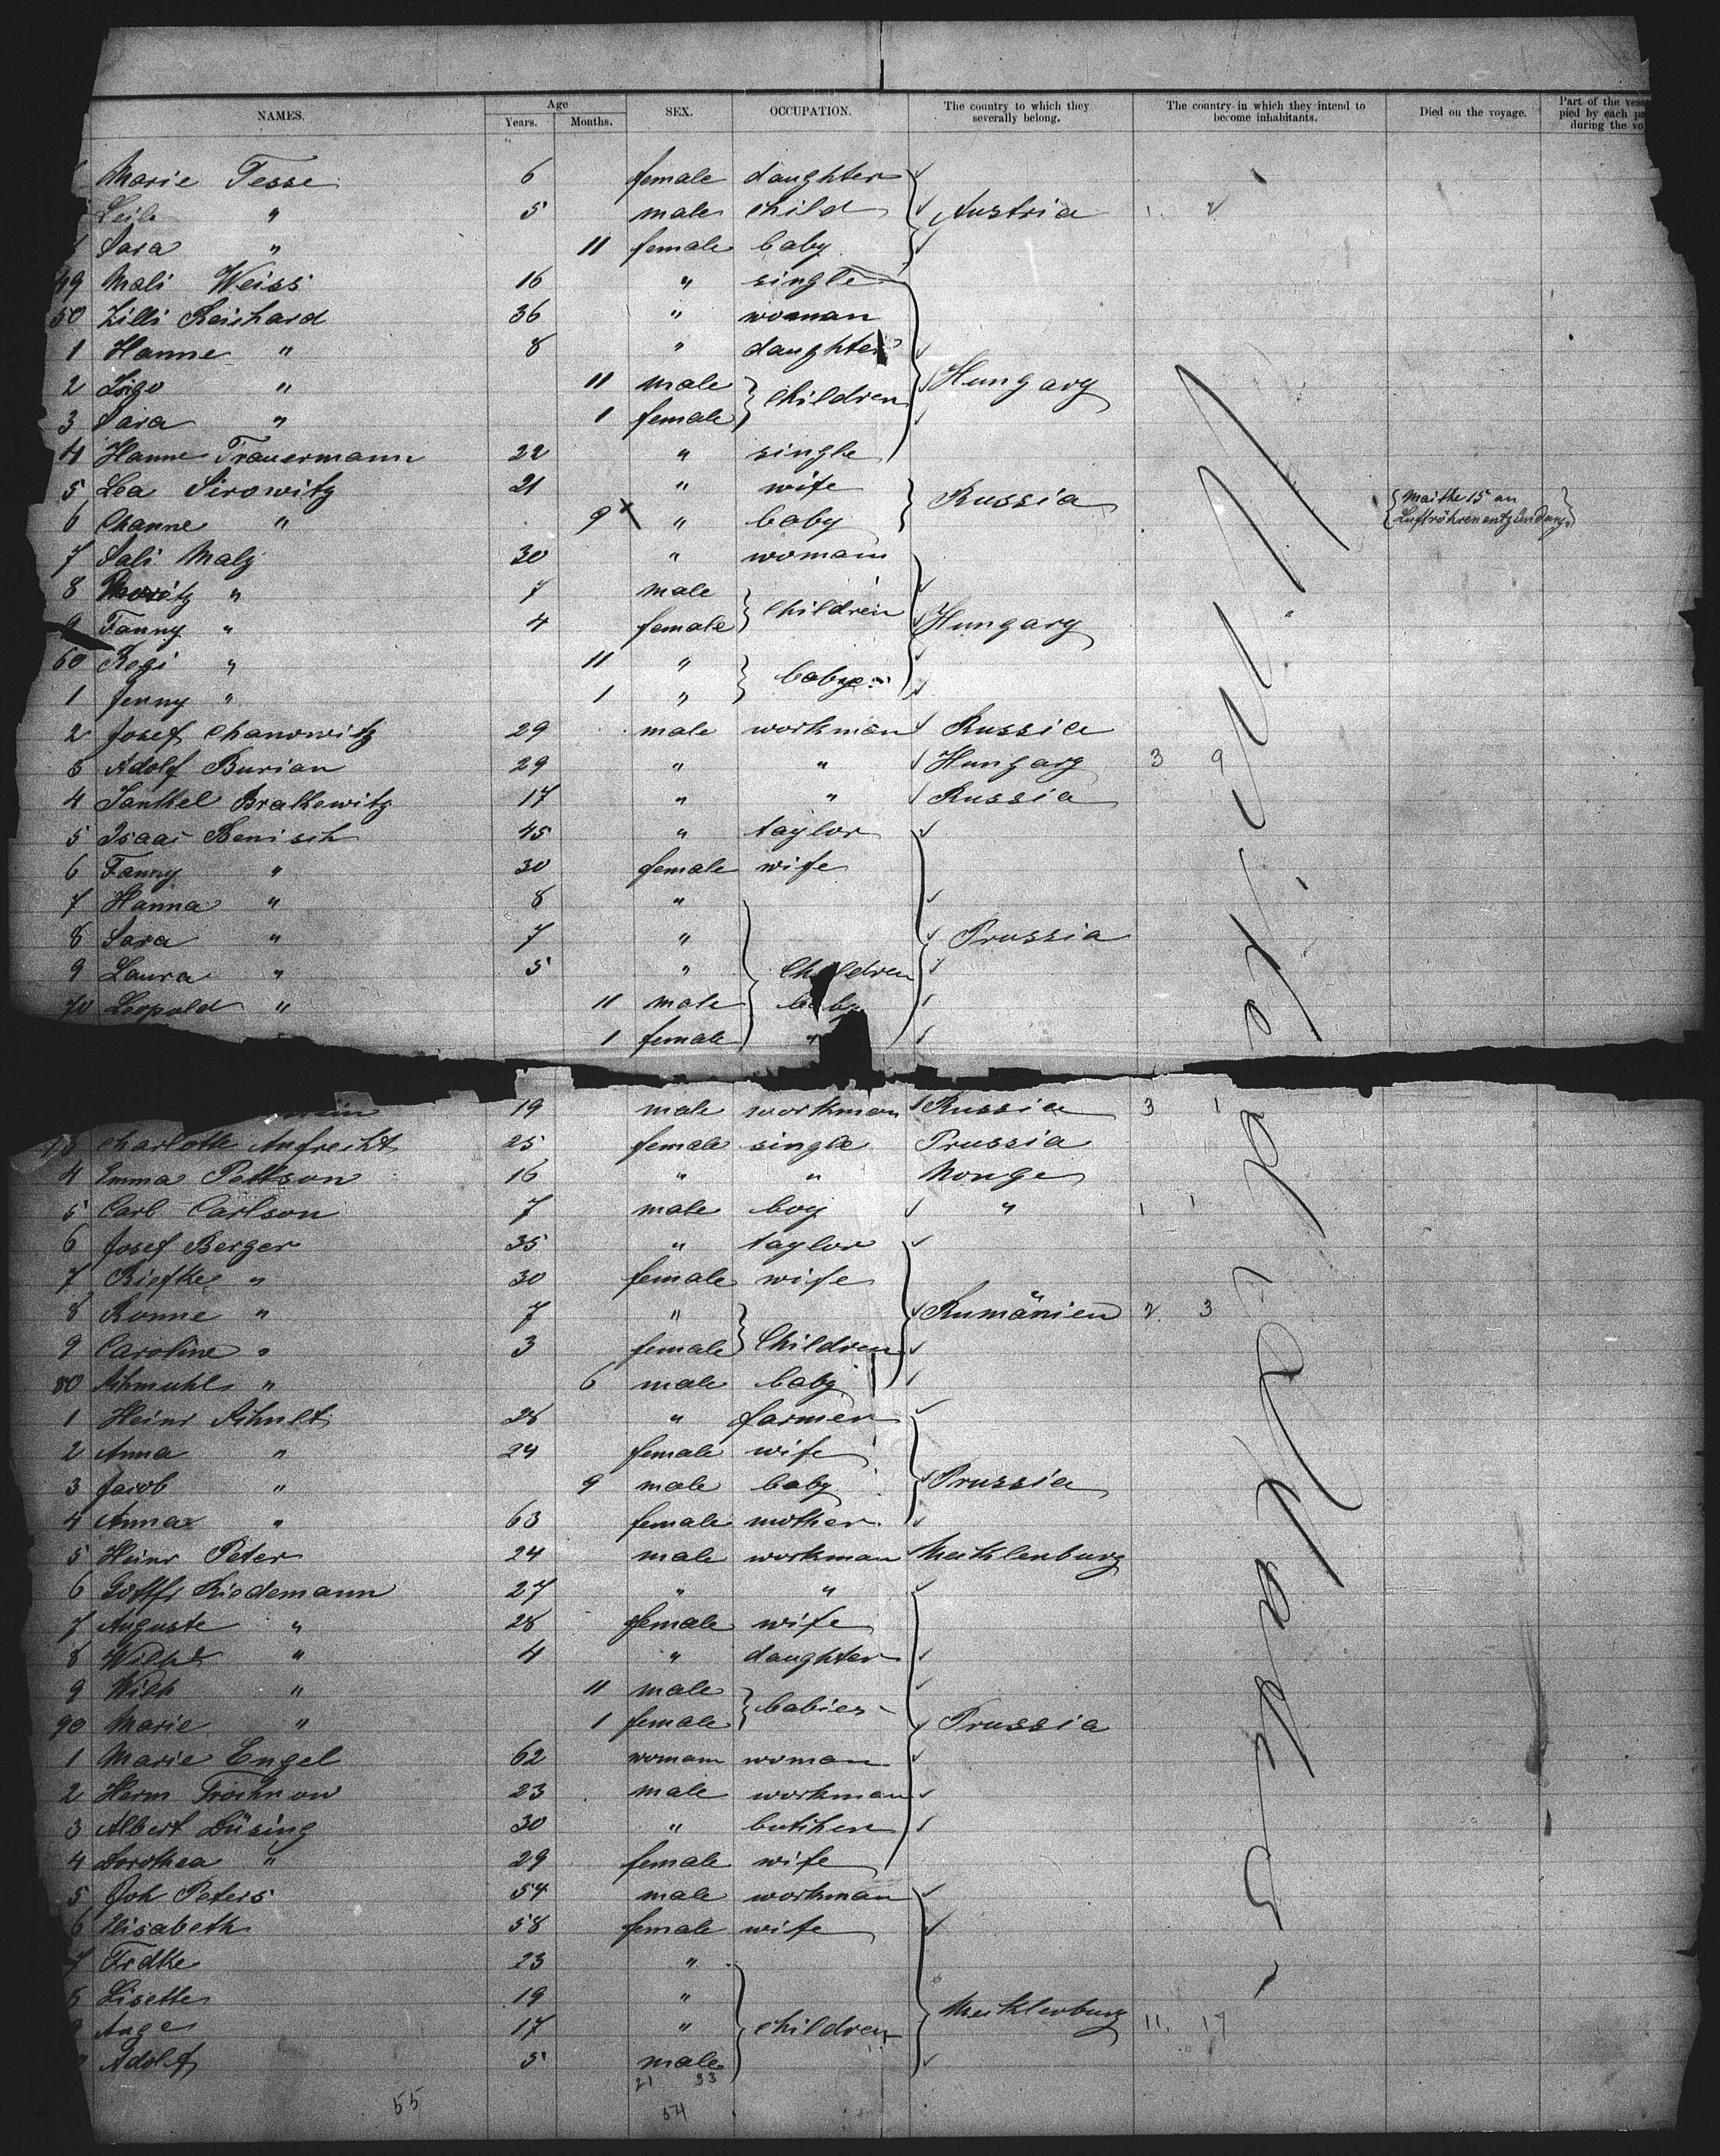 NAMES. Age Years. Months. SEX. OCCUPATION. The country to which they severally belong. The country in which they intend to become inhabitants. Died on the voyage. Part of the ves pied by each pa during the vo
Marie Tesse 6 female daughter
Leib " 5 male child Austria
Sara " 11 female baby
49 Mali Weiss 16 " single
50 Zilli Reichard 36 " woman
1 Hanne " 8 " daughter
2 " 11 male children Hungary
3 Sara " 1 female
4 Hanne Trauermann 22 " single
5 Lea Sirowitz 21 " wife Russia
6 Channe " 9 " baby Mai the 15 an Luftröhrenentzündung
7 Sali Maly 30 " woman
8 Moritz " 7 male children
9 Fanny " 4 female Hungary
60 Regi " 11 "
1 Jenny " 1 "
2 Josef Chanowitz 29 male workman Russia
3 Adolf Burian 29 " " Hungary 3 9
4 Jankel Bratkewitz 17 " " Russia
5 Isaac Benisch 45 " taylor
6 Fanny " 30 female wife
7 Hanna " 8 "
8 Sara " 7 " Prussia
9 Laura " 5 " Children
70 Leopold " 11 male baby
1 female "
19 male workman Russia 3 1
Charlotte Aufrecht 25 female single Prussia
4 Emma Pettson 16 " " Norge
5 Carl Carlson 7 male boy " 1 1
6 Josef Berger 35 " taylor
7 Riefke " 30 female wife
8 Ronne " 7 " Rumänien 2 3
9 Caroline " 3 female Children
80 Schmuhl " 6 male baby
1 Heinr Schult 28 " farmer
2 Anna " 24 female wife
3 Jacob " 9 male baby Prussia
4 Anna " 63 female mother
5 Heinr Peter 24 male workman Mecklenburg
6 Gottfr Riedemann 27 " "
7 Auguste " 28 female wife
8 " 4 " daughter
9 Wilh " 11 male babies
90 Marie " 1 female Prussia
1 Marie Engel 62 woman woman
2 Herm Trochnow 23 male workman
3 Albert Düsing 30 " butcher
4 Dorothea " 29 female wife
5 Joh Peters 54 male workman
6 Elisabeth 58 female wife
7 Frdke 23 "
8 Lisette 19 "
17 " children Mecklenburg 11. 17
Adolf 5 male
21 33
55 54
United States of America